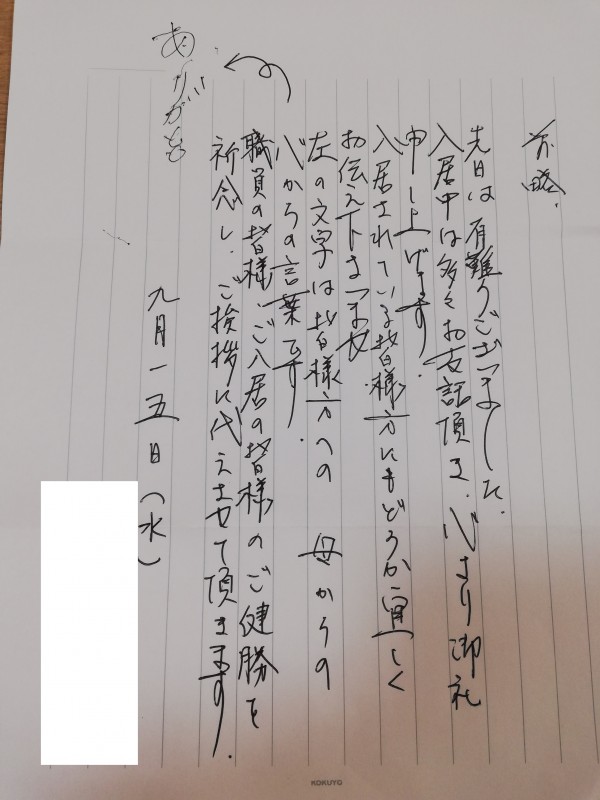 前略.
先日は有難うございました.
入居中は多々お世話頂き.心より御礼
申し上げます.
入居されている皆様方にもどうか宜しく
お伝え下さいませ
左の文字は皆様方への 母からの
心からの言葉です.
職員の皆様、ご入居の皆様のご健勝を
祈念し.ご挨拶に代えさせて頂きます.
ありがとう
九月一五日(水)
KOKUYO